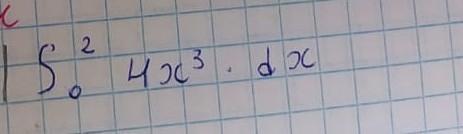 ∫₀² 4x³ · dx